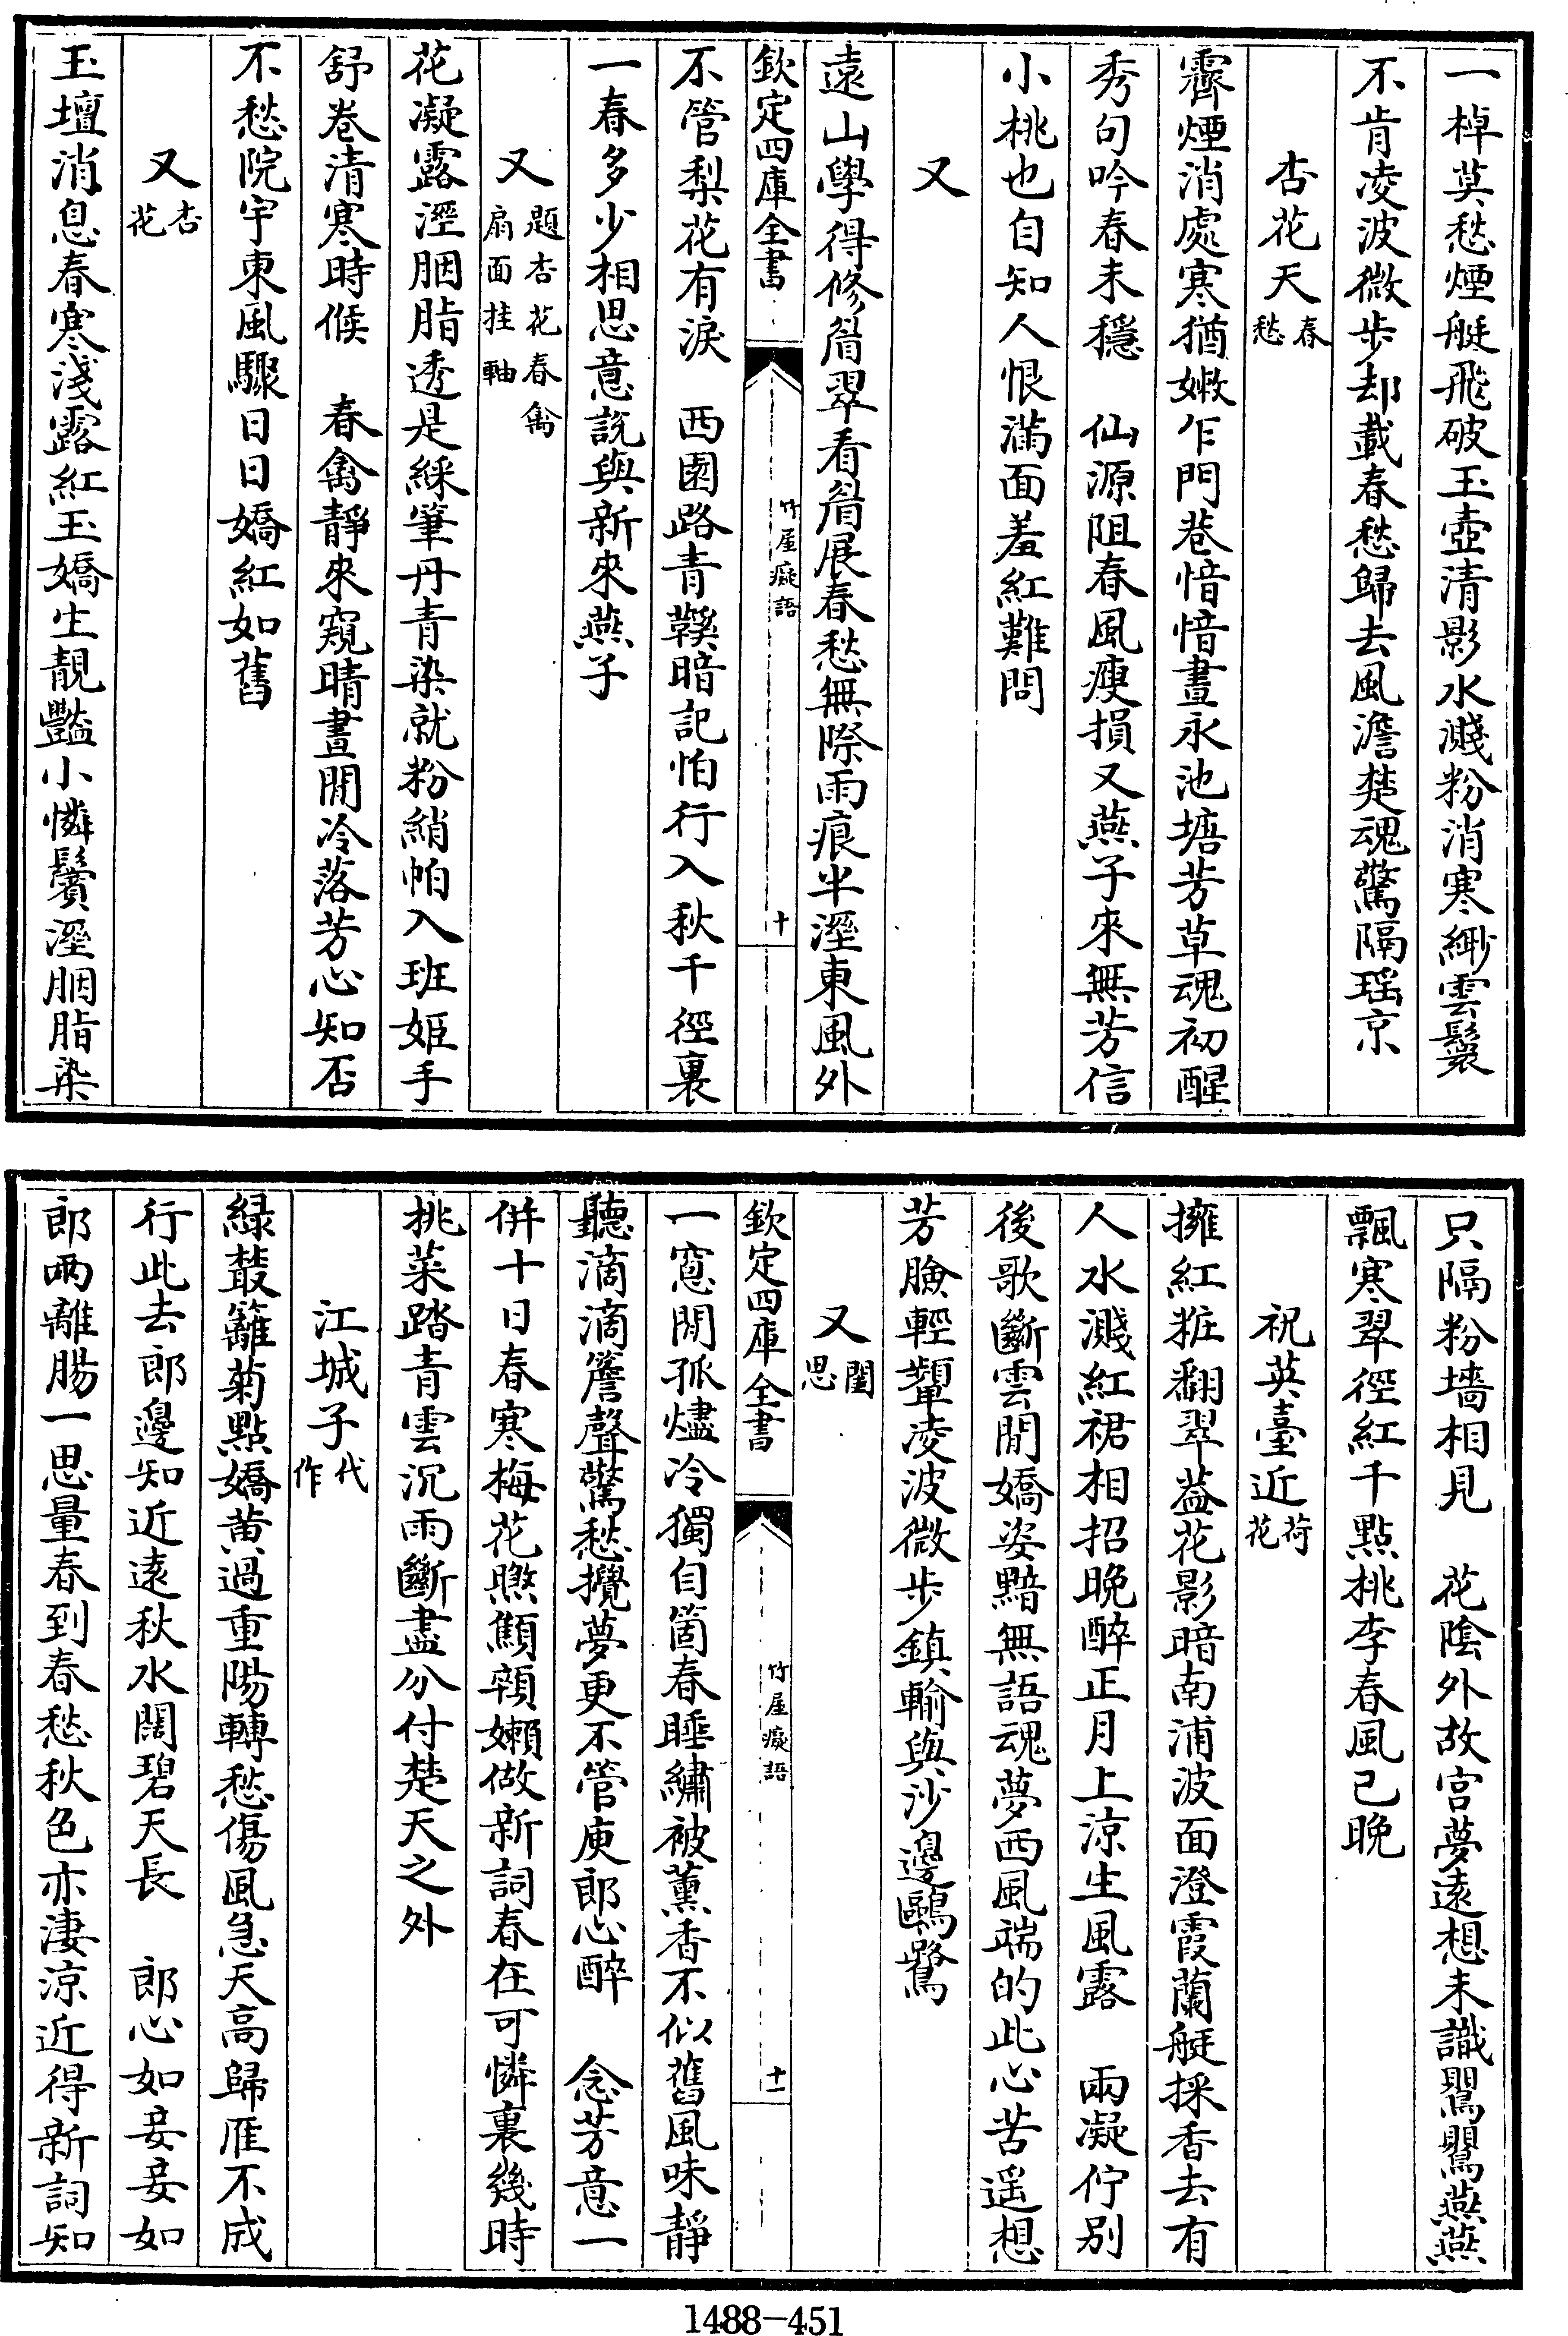 一棹莫愁煙艇飛破玉壺清影水濺粉消寒緲雲鬟
不肯凌波微步却載春愁歸去風澹楚魂驚隔瑶京
杏花天春愁
霽煙消處寒猶嫩乍門巷愔愔晝永池塘芳草魂初醒
秀句吟春未穩　仙源阻春風瘦損又燕子來無芳信
小桃也自知人恨滿面羞紅難問
又
遠山學得修眉翠看眉展春愁無際雨痕半溼東風外
欽定四庫全書　竹屋癡語　十
不管梨花有淚　西園路青鞵暗記怕行入秋千徑裏
一春多少相思意說與新來燕子
又題杏花春禽扇面挂軸
花凝露溼胭脂透是綵筆丹青染就粉綃帕入班姬手
舒卷清寒時候　春禽靜來窺晴晝閒冷落芳心知否
不愁院宇東風驟日日嬌紅如舊
又杏花
玉壇消息春寒淺露紅玉嬌生靚豔小憐鬢溼胭脂染
只隔粉墻相見　花陰外故宮夢遠想未識鸎鸎燕燕
飄寒翠徑紅千點桃李春風已晚
祝英臺近荷花
擁紅粧翻翠葢花影暗南浦波面澄霞蘭艇採香去有
人水濺紅裙相招晚醉正月上涼生風露　兩凝佇别
後歌斷雲閒嬌姿黯無語魂夢西風端的此心苦遥想
芳臉輕顰凌波微步鎮輸與沙邊鷗鷺
又閨思
欽定四庫全書　竹屋癡語　十一
一窻閒孤燼冷獨自箇春睡繡被薰香不似舊風味靜
聽滴滴簷聲驚愁攪夢更不管庾郎心醉　念芳意一
併十日春寒梅花㷖顦顇嬾做新詞春在可憐裏幾時
挑菜踏青雲沉雨斷盡分付楚天之外
江城子代作
緑叢籬菊點嬌黄過重陽轉愁傷風急天高歸雁不成
行此去郎邊知近遠秋水闊碧天長　郎心如妾妾如
郎兩離腸一思量春到春愁秋色亦淒涼近得新詞知
1488-451